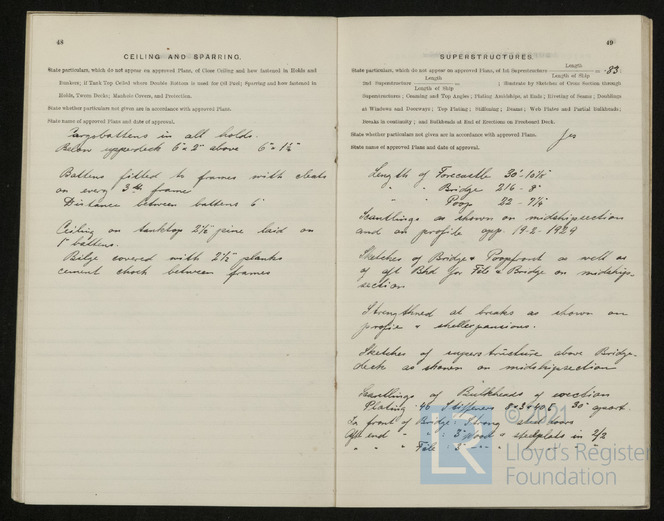 48
CEILING AND SPARRING.
State particulars, which do not appear on approved Plans, of Close Ceiling and how fastened in Holds and
Bunkers; if Tank Top Ceiled where Double Bottom is used for Oil Fuel; Sparring and how fastened in
Holds, Tween Decks; Manhole Covers, and Protection.
State whether particulars not given are in accordance with approved Plans.
State name of approved Plans and date of approval.
Cargobattens in all holds.
Below upperdeck 6" × 2" above 6" × 1½"
Battens fitted to frames with cleats
on every 3rd frame
Distance between battens 6"
Ceiling on tanktop 2½" pine laid on
1" battens.
Bilge covered with 2½" planks
cement chock between frames
49
SUPERSTRUCTURES.
State particulars, which do not appear on approved Plans, of 1st Superstructure Length / Length of Ship = .83
2nd Superstructure Length / Length of Ship ; Illustrate by Sketches of Cross Section through
Superstructures; Coaming and Top Angles; Plating Amidships, at Ends; Riveting of Seams; Doublings
at Windows and Doorways; Top Plating; Stiffening; Beams; Web Plates and Partial Bulkheads;
Breaks in continuity; and Bulkheads at End of Erections on Freeboard Deck.
State whether particulars not given are in accordance with approved Plans. Yes
State name of approved Plans and date of approval.
Length of Forecastle 30'-10⅞"
" " Bridge 216 - 8"
" " Poop 22 - 7⅞"
Scantlings as shown on midshipsection
and on profile app. 19.2.1929
Sketches of Bridge & Poopfront as well as
of aft Bhd for Fcle & Bridge on midship-
section
Strengthned at breaks as shown on
profile & shellexpansions.
Sketches of superstructure above Bridge-
deck as shown on midshipsection
Scantlings of Bulkheads of erection
Plating .46 Stiffeners 30" apart.
In front of Bridge: Strong steel doors
Aft end " " : 3" Wood & steelplats in 2/2
" " " Fcle : 3" " " " "
© 2021
LR
Lloyd's Register
Foundation